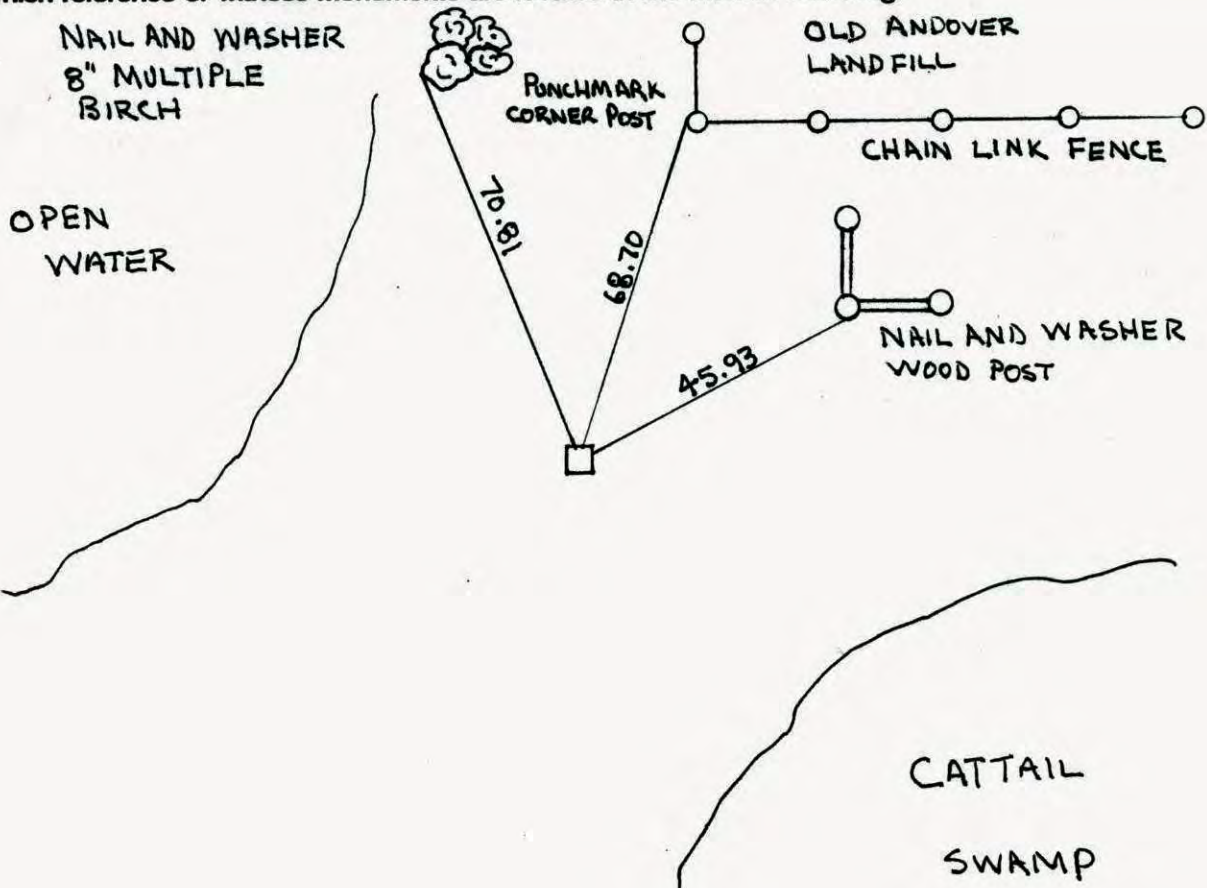 NAIL AND WASHER
8" MULTIPLE
BIRCH
PUNCHMARK
CORNER POST
OLD ANDOVER
LANDFILL
CHAIN LINK FENCE
OPEN
WATER
70.81
68.70
45.93
NAIL AND WASHER
WOOD POST
CATTAIL
SWAMP